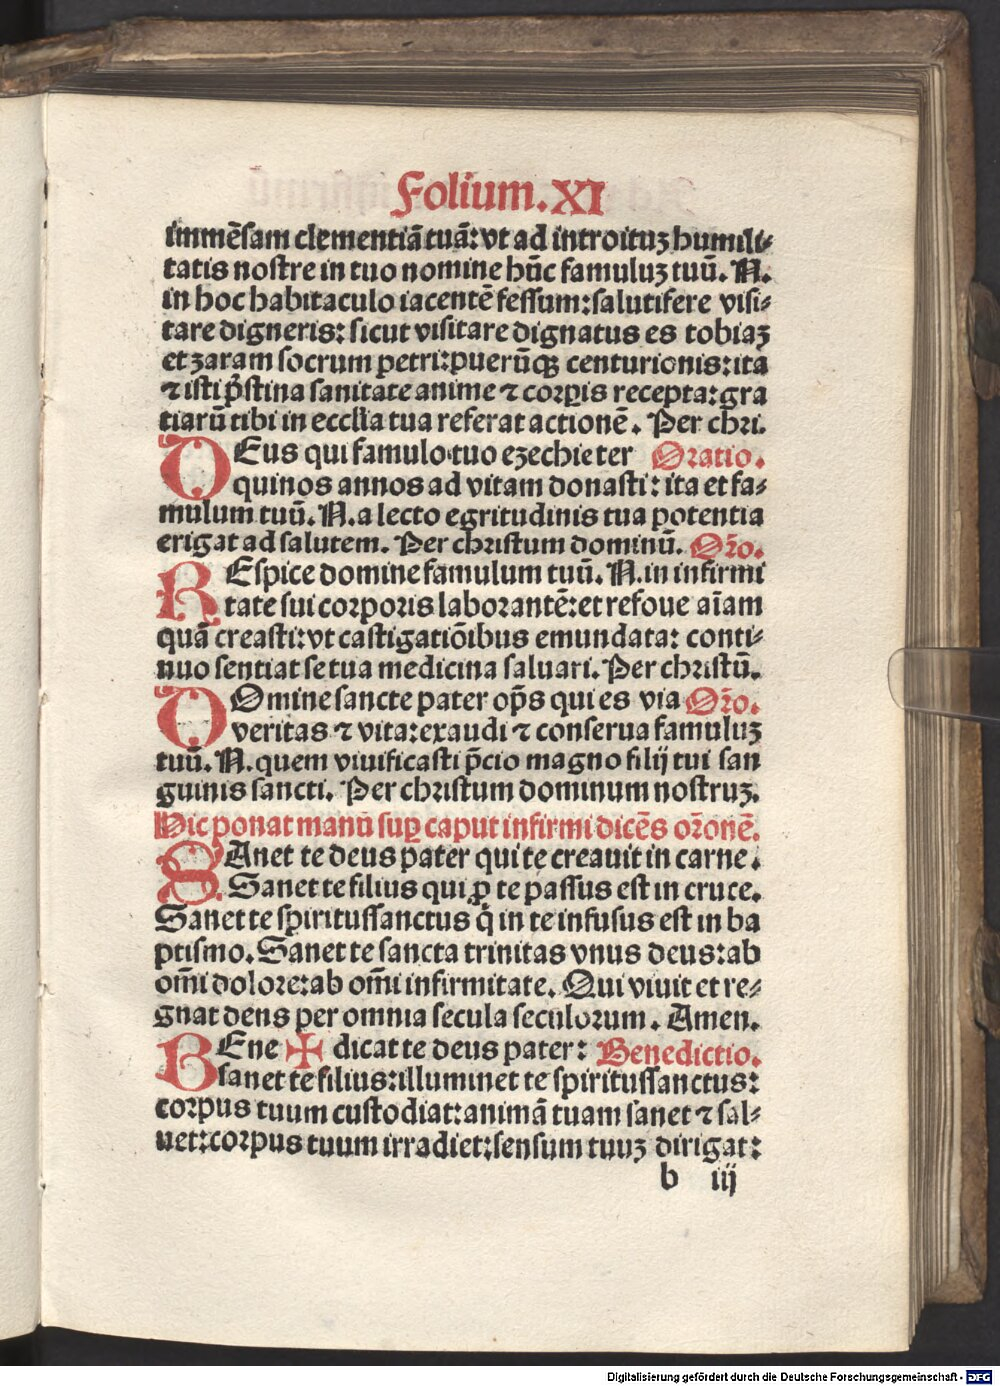 Folium. XI
immēsam clementiā tuā: vt ad introituꝫ humili⸗
tatis nostre in tuo nomine hūc famuluꝫ tuū. N.
in hoc habitaculo iacentē fessum: salutifere visi⸗
tare digneris: sicut visitare dignatus es tobiaꝫ
et zaram socrum petri: puerūqꝫ centurionis: ita
⁊ isti p̄stina sanitate anime ⁊ corꝑis recepta: gra
tiarū tibi in eccl̄ia tua referat actionē. Per chri.
DEus qui famulo tuo ezechie ter Oratio.
quinos annos ad vitam donasti: ita et fa⸗
mulum tuū. N. a lecto egritudinis tua potentia
erigat ad salutem. Per christum dominū. Oŕo.
REspice domine famulum tuū. N. in infirmi
tate sui corporis laborantē: et refoue aīam
quā creasti: vt castigatiōibus emundata: conti⸗
nuo sentiat se tua medicina saluari. Per christū.
DOmine sancte pater op̄s qui es via Oŕo.
veritas ⁊ vita: exaudi ⁊ conserua famuluꝫ
tuū. N. quem viuificasti p̄cio magno filij tui san
guinis sancti. Per christum dominum nostruꝫ.
Hic ponat manū suꝑ caput infirmi dicēs oŕonē.
SAnet te deus pater qui te creauit in carne.
Sanet te filius qui ꝓ te passus est in cruce.
Sanet te spiritussanctus q̇ in te infusus est in ba
ptismo. Sanet te sancta trinitas vnus deus: ab
om̄i dolore: ab om̄i infirmitate. Qui viuit et re⸗
gnat dens per omnia secula seculorum. Amen.
BEne ✠ dicat te deus pater: Benedictio.
sanet te filius: illuminet te spiritussanctus:
corpus tuum custodiat: animā tuam sanet ⁊ sal⸗
uet: corpus tuum irradiet: sensum tuuꝫ dirigat:
b iij
Digitalisierung gefördert durch die Deutsche Forschungsgemeinschaft - DFG